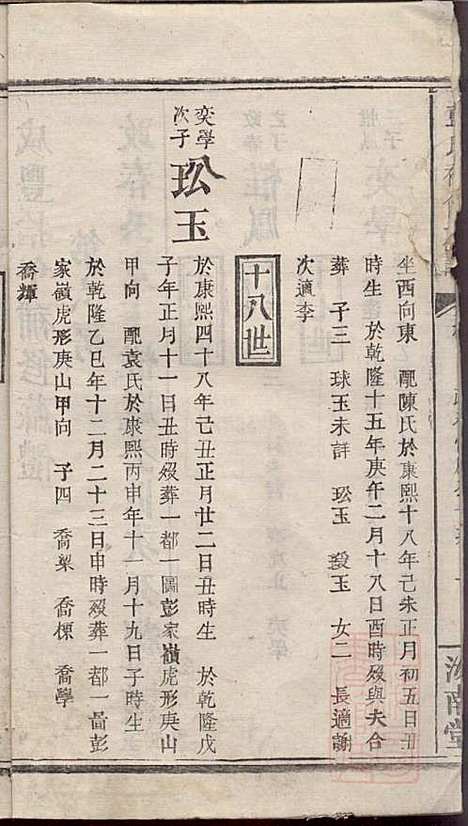 坐西向東　配陳氏於康熙十八年己未正月初五日丑
時生　於乾隆十五年庚午二月十八日酉時歿與夫合
葬　子三　球玉未詳　玜玉　瑴玉　女二　長適謝
次適李
十八世
奕學次子
玜玉
於康熙四十八年己丑正月廿二日丑時生　於乾隆戊
子年正月十一日丑時歿葬一都一圖彭家嶺虎形庚山
甲向　配袁氏於康熙丙申年十一月十九日子時生
於乾隆乙巳年十二月二十三日申時歿葬一都一啚彭
家嶺虎形庚山甲向　子四　喬梁　喬標　喬學
喬輝
汝南堂